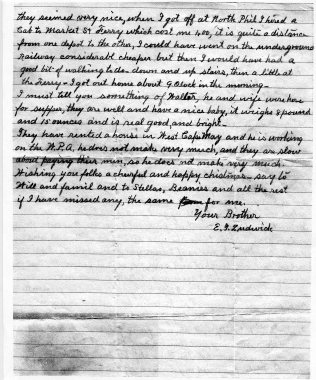 they seemed very nice, when I got off at North Phil I hired a
Cab to Market St Ferry which cost me 1.00, it is quite a distance
from one depot to the other, I could have went on the underground
Railway considerabl cheaper but then I would have had a
good bit of walking to do down and up stairs, then a little at
the Ferry - I got out home about 9 O'clock in the morning -
I must tell you something of Walter, he and wife were here
for supper, they are well and have a nice baby, it weighs 8 pounds
and 15 ounces and is real good and bright -
They have rented a house in West Cape May and he is working
on the W.P.A. he does not make very much, and they are slow
about paying their men, so he does not make very much.
Wishing you folks a cheerful and happy chistmas - say to
Will and famil and to Stellas, Beanies and all the rest
if I have missed any, the same for me.
Your Brother
E. F. Ludwick